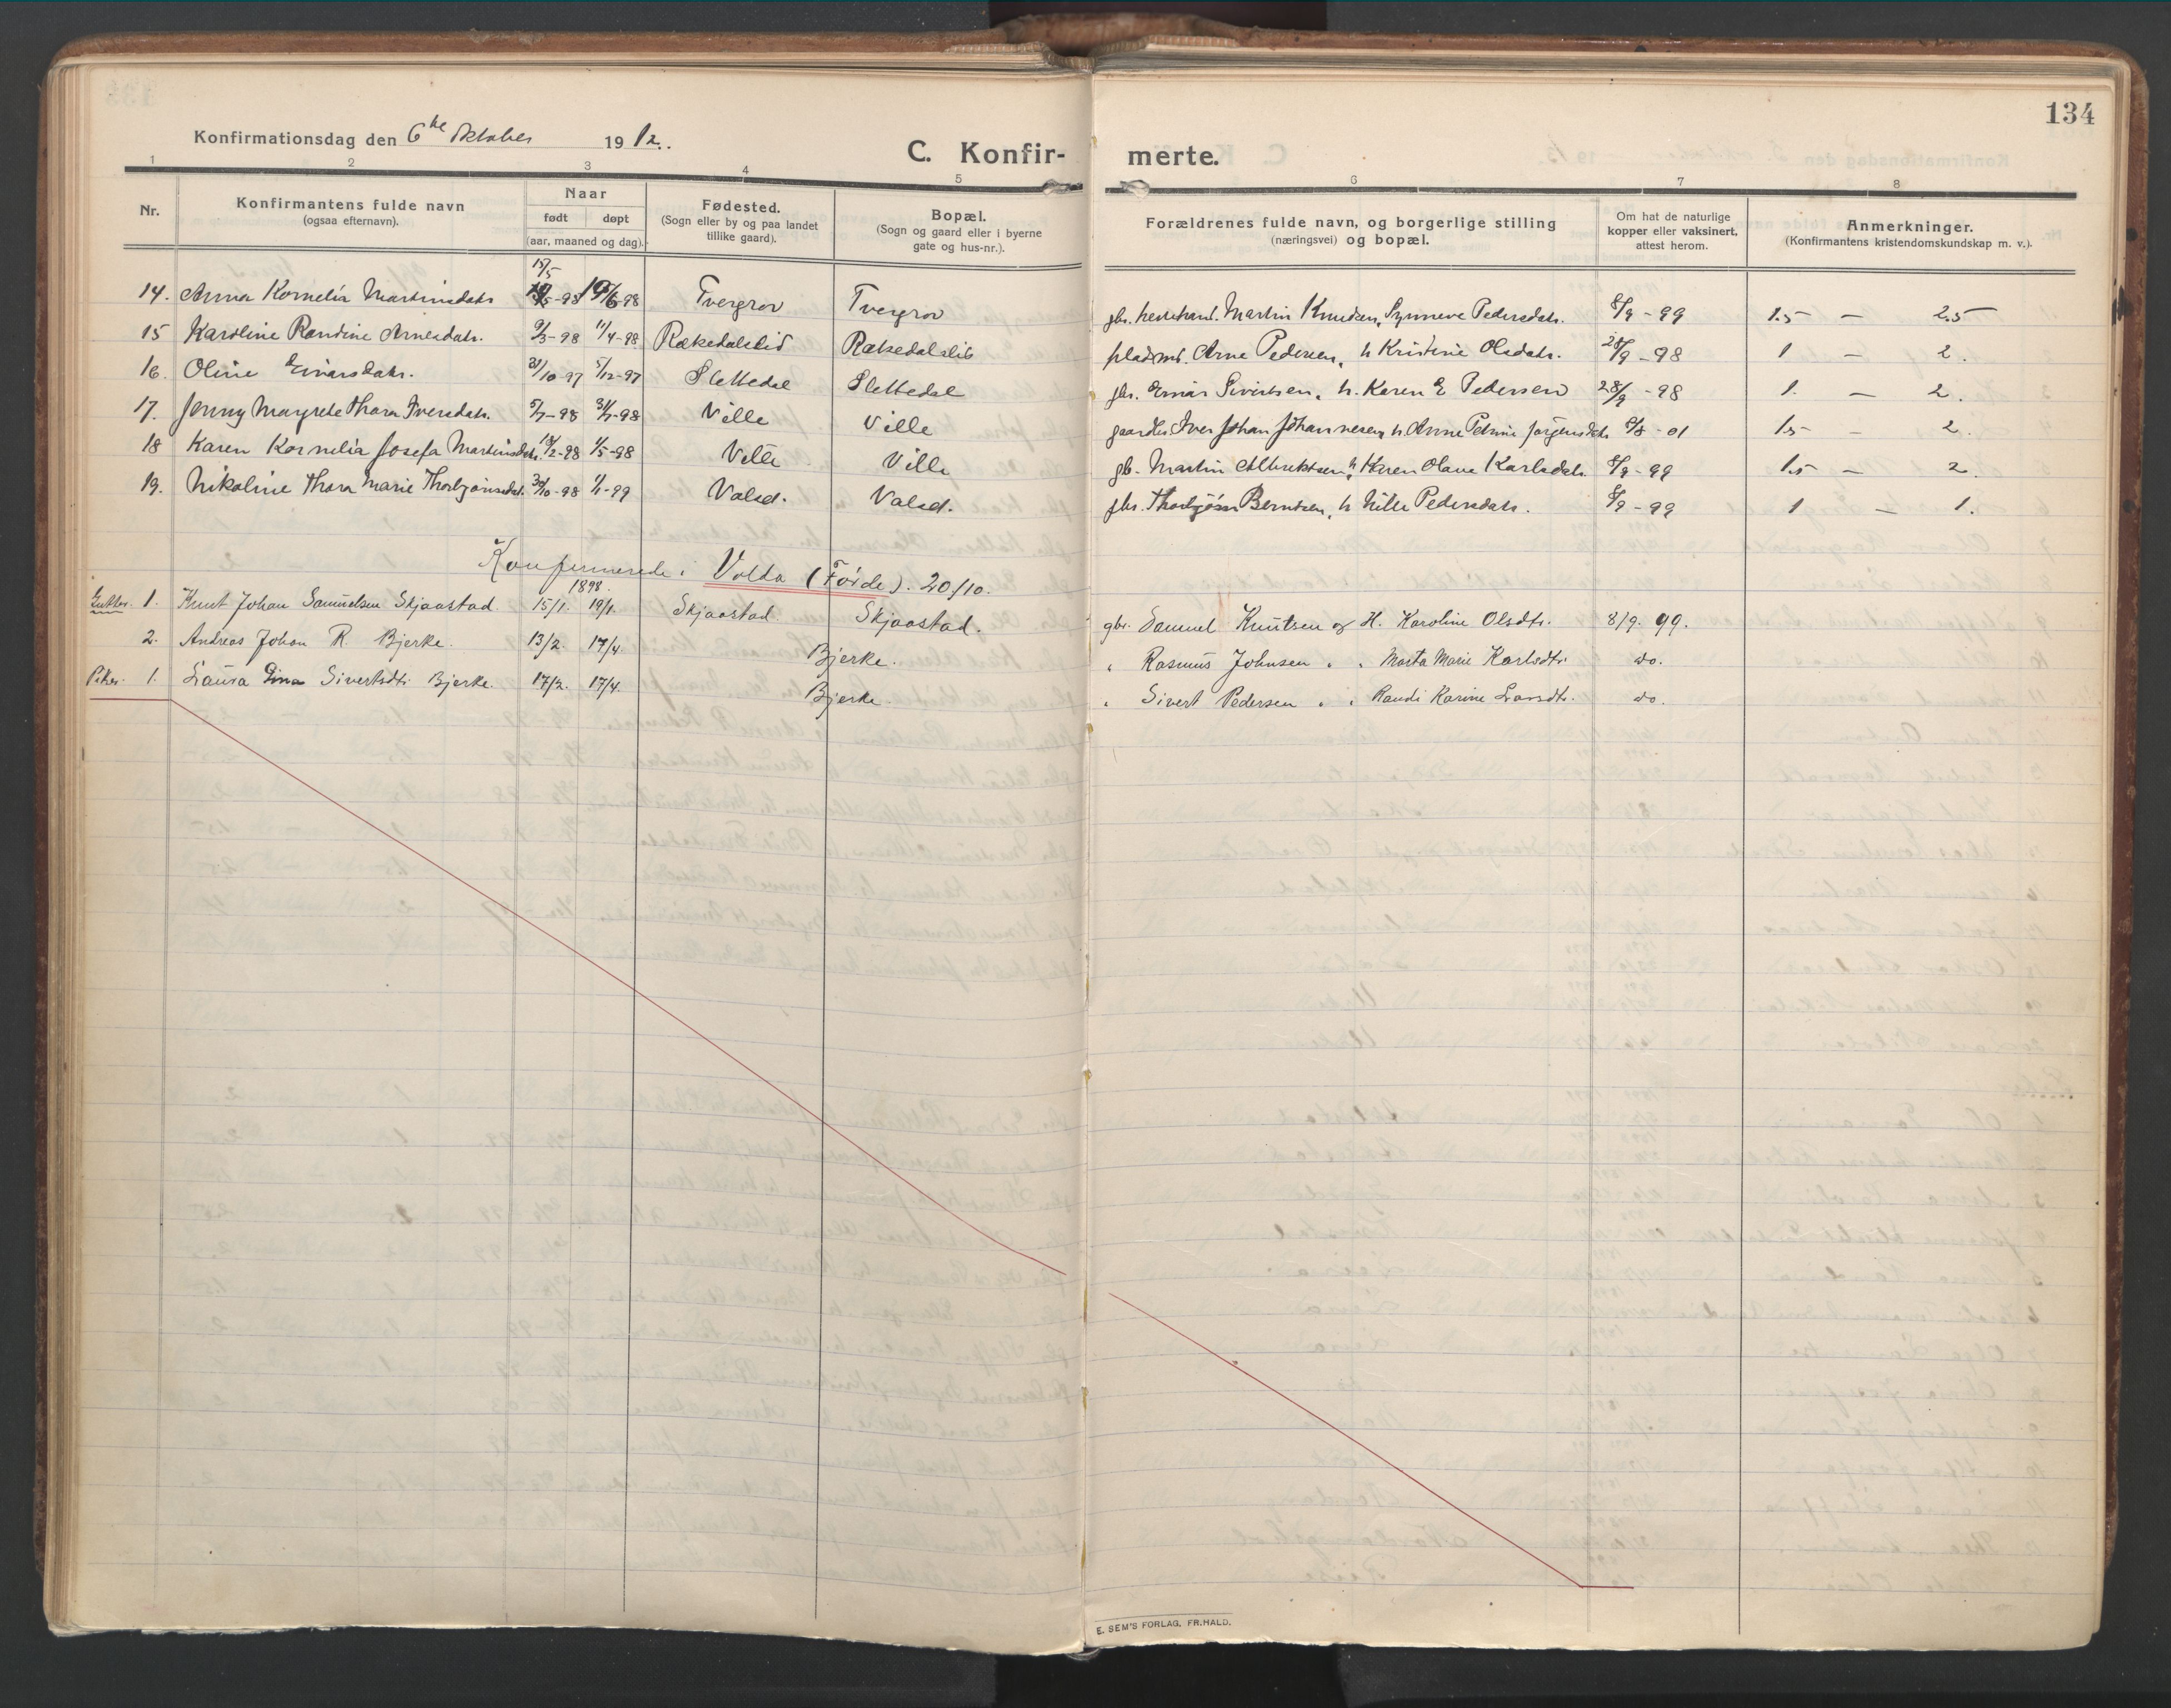 134
Konfirmationsdag den 6te Oktober 1912.
C. Konfir- merte.
1 2 3 4 5 6 7 8
Nr.
Konfirmantens fulde navn
(ogsaa efternavn).
Naar
født døpt
(aar, maaned og dag).
Fødested.
(Sogn eller by og paa landet
tillike gaard).
Bopæl.
(Sogn og gaard eller i byerne
gate og hus-nr.).
Forældrenes fulde navn, og borgerlige stilling
(næringsvei) og bopæl.
Om hat de naturlige
kopper eller vaksinert,
attest herom.
Anmerkninger.
(Konfirmantens kristendomskundskap m. v.).
15/5
14. Anna Kornelia Martinsdatr 19/6-98 Tvergrov Tvergrov gbr. Martin Knudsen, Synneve Pedersdatr. 8/9-99 1.5 — 2.5
15 Karoline Randine Arnesdatr. 9/3-98 11/4-98 Rækedalslid Rækedalslid pladsmd. Arne Pedersen, h Kristine Olsdatr. 28/9-98 1 — 2.
16. Oline Einarsdatr. 31/10-97 5/12-97 Slettedal Slettedal gbr. Einar Sivertsen, h. Karen E Pedersen 28/9-98 1. — 2.
17. Jenny Margrete Thora Iversdatr. 5/7-98 31/7-98 Ville Ville Iver Johan Johannesen, h. Anne Petrine Jørgensdatr 9/8-01 1.5 — 2.
18 Karen Kornelia Josefa Martinsdatr. 19/2-98 1/5-98 Ville Ville gb. Martin Albriktsen, h Karen Olava Karlsdatr. 8/9-99 1.5 — 2.
19. Nikoline Thora Marie Thorbjørnsdat. 30/10-98 1/1-99 Valsd. Valsd. gbr. Thorbjørn Berntsen, h Nille Pedersdatr. 8/9-99 1 — 1.
Konfirmerede i Volda (Føide). 20/10.
1898.
Gutter. 1. Knut Johan Samuelsen Skjaastad 15/1. 19/1. Skjaastad. Skjaastad. gbr. Samuel Knutsen og H. Karoline Olsdtr. 8/9. 99.
2. Andreas Johan R. Bjerke. 13/2. 17/4. Bjerke. " Rasmus Johnsen " " Marta Marie Karlsdtr. do.
Piker. 1. Laura Gina Sivertsdtr Bjerke. 17/2. 17/4. Bjerke. " Sivert Pedersen " " Randi Karine Larsdtr. do.
E. SEM'S FORLAG, FR.HALD.